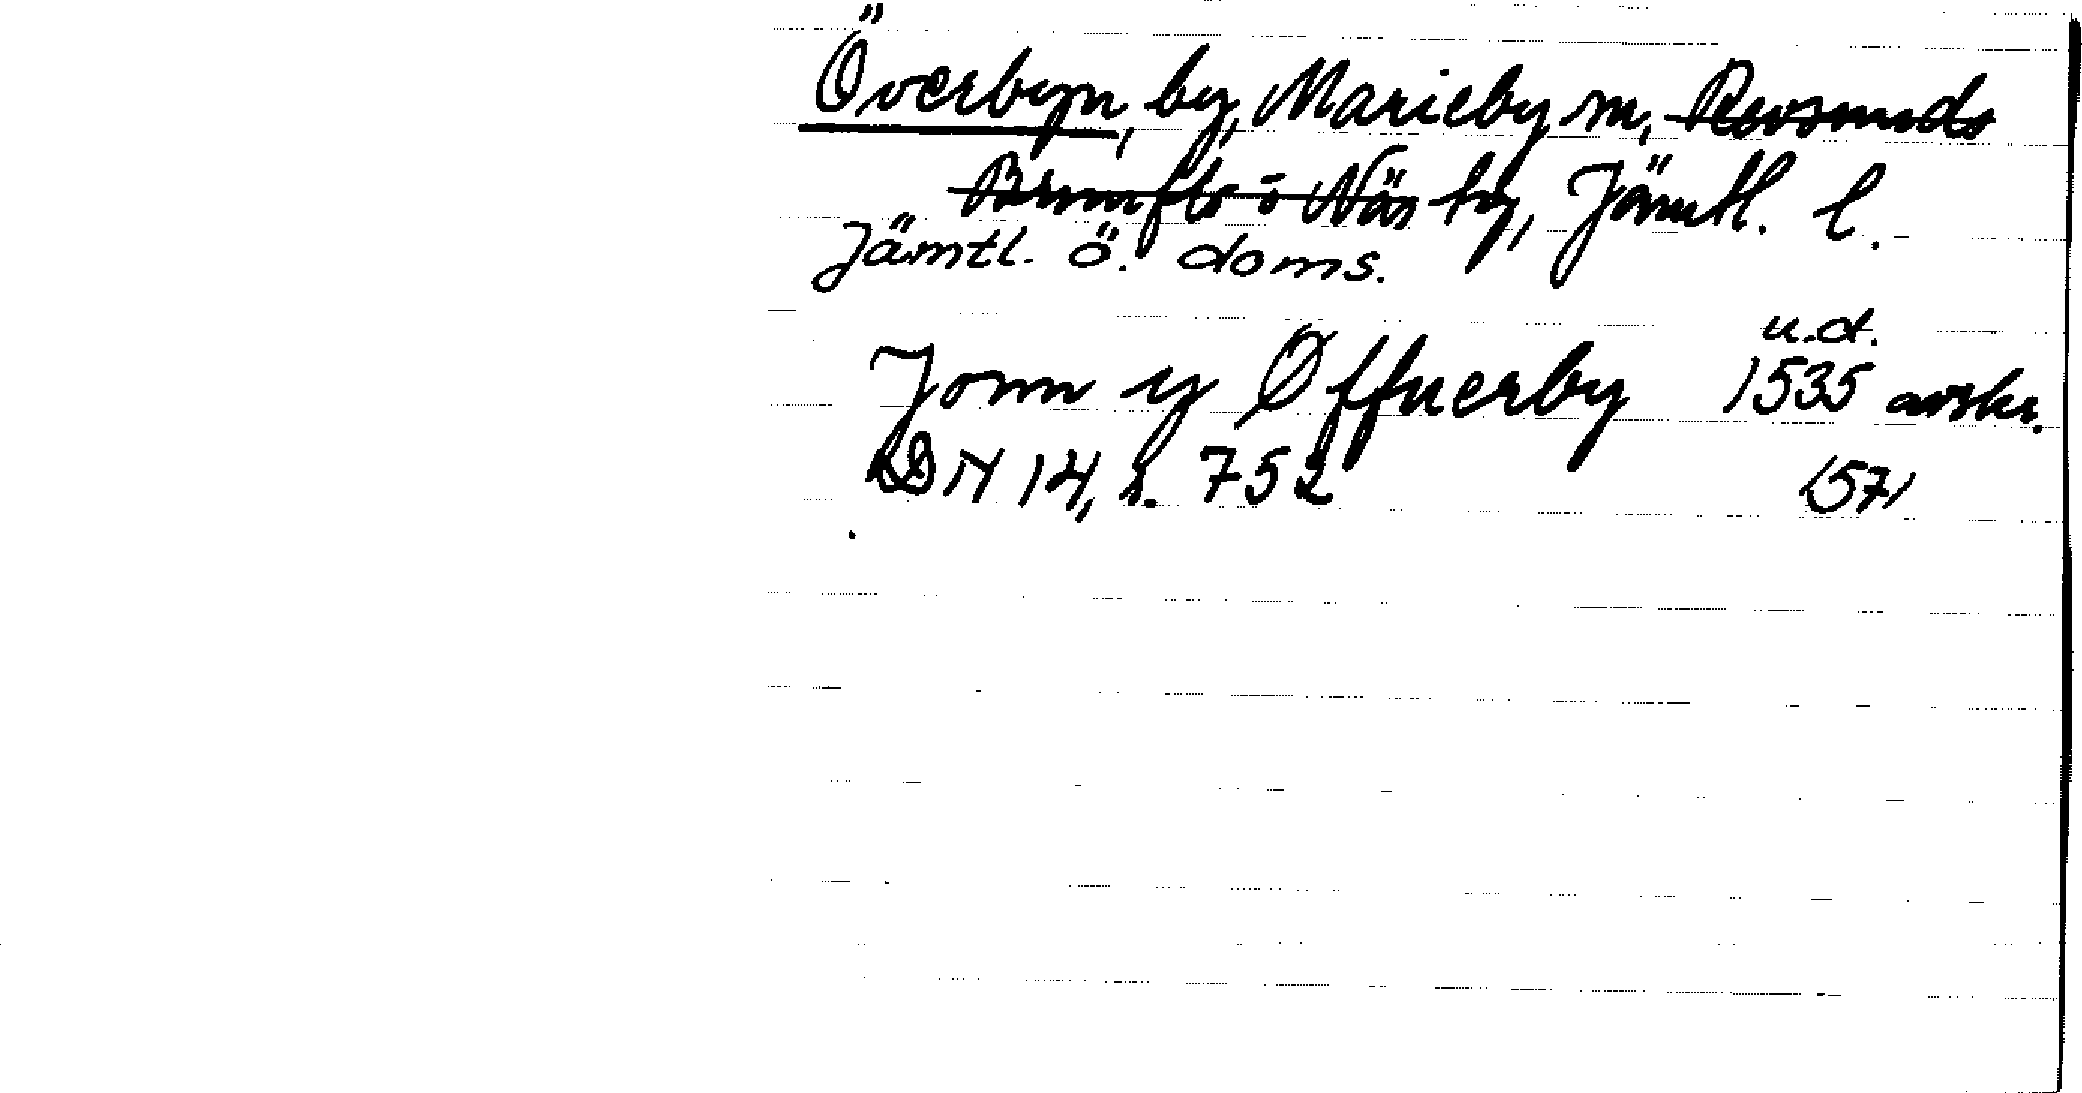 Överbyn, by, Marieby sn, Revsunds
Brunflo o Näs tg, Jämtl. l.
Jämtl. ö. doms.
u.d.
Jonn y Øffuerby 1535 avskr.
DN 14, s. 752 (57)